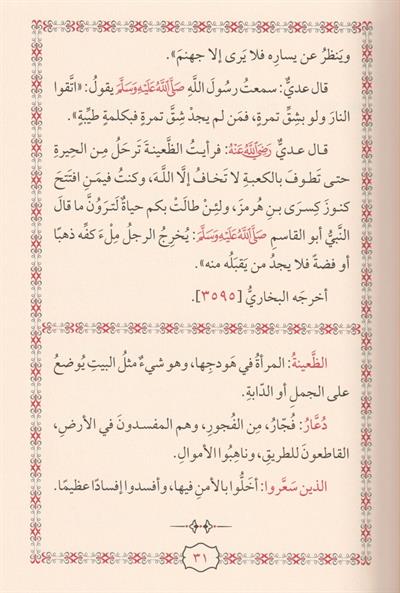 ويَنظرُ عن يسارِه فلا يَرى إلا جهنمَ».
قال عديٌّ: سمعتُ رسُولَ اللَّهِ صَلَّى اللَّهُ عَلَيْهِ وَسَلَّمَ يقولُ: «اتَّقوا
النارَ ولو بشِقِّ تمرةٍ، فمَن لم يجدْ شِقَّ تمرةٍ فبكلمةٍ طيِّبةٍ».
قال عديٌّ رَضِيَ اللَّهُ عَنْهُ: فرأيتُ الظَّعينةَ تَرحَلُ مِن الحِيرةِ
حتى تَطوفَ بالكعبةِ لا تَخافُ إلَّا اللَّهَ، وكنتُ فيمَنِ افتَتَحَ
كنوزَ كِسرَى بنِ هُرمزَ، ولئِنْ طالَتْ بكم حياةٌ لَتَروُنَّ ما قالَ
النَّبيُّ أبو القاسمِ صَلَّى اللَّهُ عَلَيْهِ وَسَلَّمَ: يُخرِجُ الرجلُ مِلْءَ كفِّه ذهبًا
أو فضةً فلا يجدُ من يَقبَلُه منه».
أخرجَه البخاريُّ [٣٥٩٥].
الظَّعينةُ: المرأةُ في هَودجِها، وهو شيءٌ مثلُ البيتِ يُوضعُ
على الجملِ أو الدّابةِ.
دُعَّارُ: فُجّارُ، مِن الفُجورِ، وهم المفسدونَ في الأرضِ،
القاطعونَ للطريقِ، وناهِبُوا الأموالِ.
الذين سَعَّروا: أخَلُّوا بالأمنِ فيها، وأفسدوا إفسادًا عظيمًا.
٣١